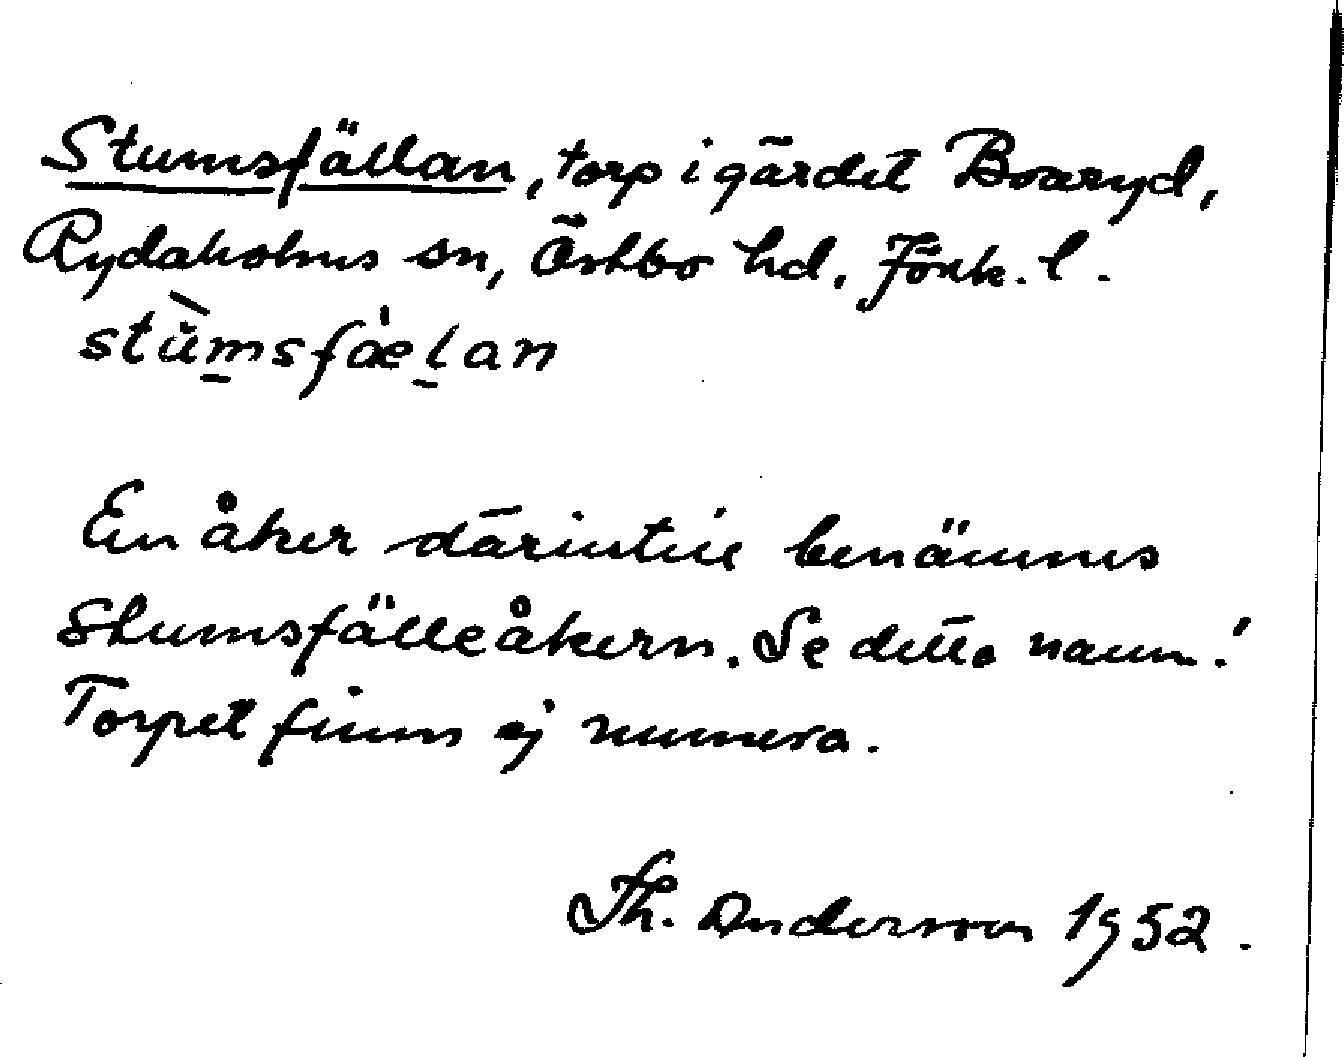 Stumsfällan, torp i gärdet Boaryd,
Rydaholms sn, Östbo hd. Jönk. l.
stùmsfæ̀lan
En åker därintill benämnes
Stumsfälleåkern. Se detta namn!
Torpet finns ej numera.
Th. Andersson 1952.